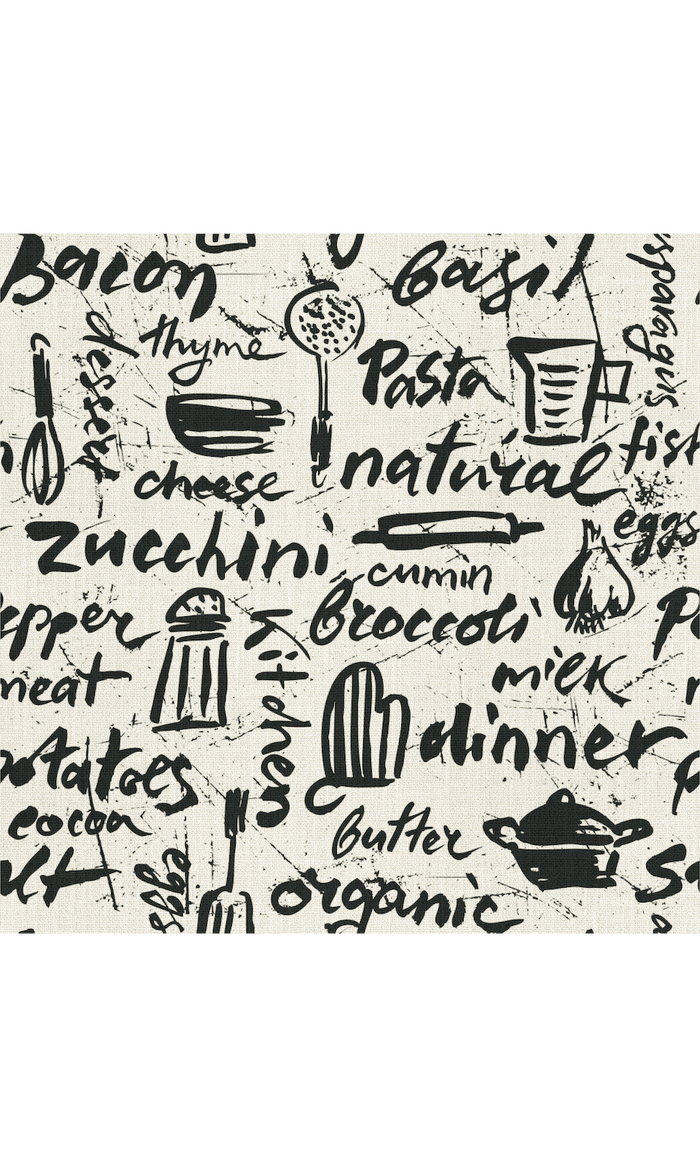 Bacon
basil
asparagus
thyme
dessert
Pasta
cheese
natural
fish
zucchini
eggs
cumin
epper
broccoli
kitchen
meat
milk
dinner
otatoes
cocoa
butter
alt
eggs
organic